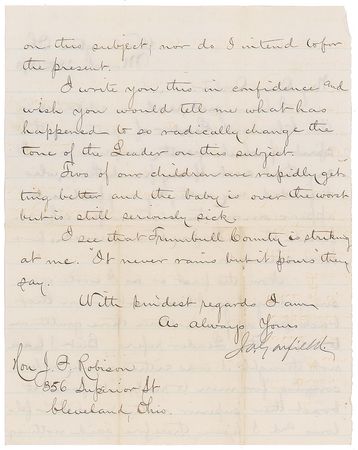 on this subject, nor do I intend to for
the present.
I write you this in confidence and
wish you would tell me what has
happened to so radically change the
tone of the Leader on this subject.
Two of our children are rapidly get-
ting better and the baby is over the worst
but is still seriously sick.
I see that Trumbull County is striking
at me. "It never rains but it pours" they
say.
With kindest regards I am
As always Yours
J.A. Garfield
Hon J. F. Robison
356 Superior St
Cleveland, Ohio.